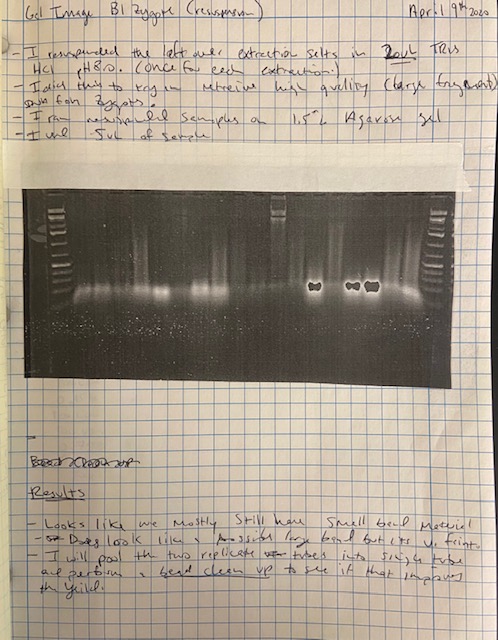 Gel Image B1 Zygote (resuspension) April 9th 2020
- I resuspended the left over extraction salts in 20uL TRIS
HCl pH8.0. (once for each extraction.)
- I did this to try in retreive high quality (large fragment)
DNA from Zygotes.
- I ran resuspended samples on 1.5% Agarose gel
- I used 5uL of sample
Results
- Looks like we mostly still have small band material
- Does look like a possible large band but its v. faint.
- I will pool the two replicate tubes into single tube
and perform a bead clean up to see if that improves
the yeild.